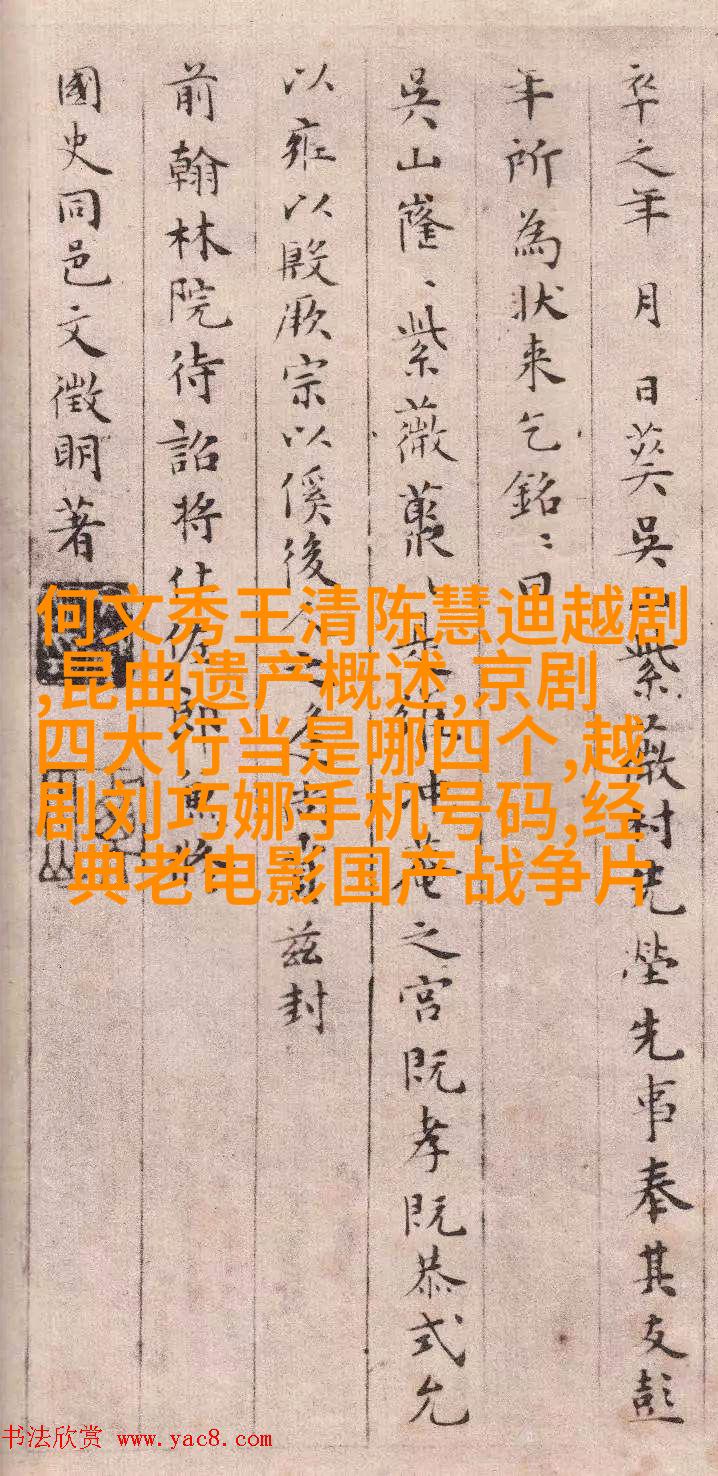 卒之年 月 日葬吳山紫薇村先塋先事奉其友彭
年所為狀来乞銘〻曰
吳山窿〻紫薇叢
冲菴之宮既孝既恭式允
以雍以殷厥宗以傒後
茲封
前翰林院待詔將仕佐郎兼修
國史同邑文徵明著
何文秀王清陈慧迪越剧
,昆曲遗产概述,京剧
四大行当是哪四个,越
剧刘巧娜手机号码,经
典老电影国产战争片
书法欣赏 www.yac8.com